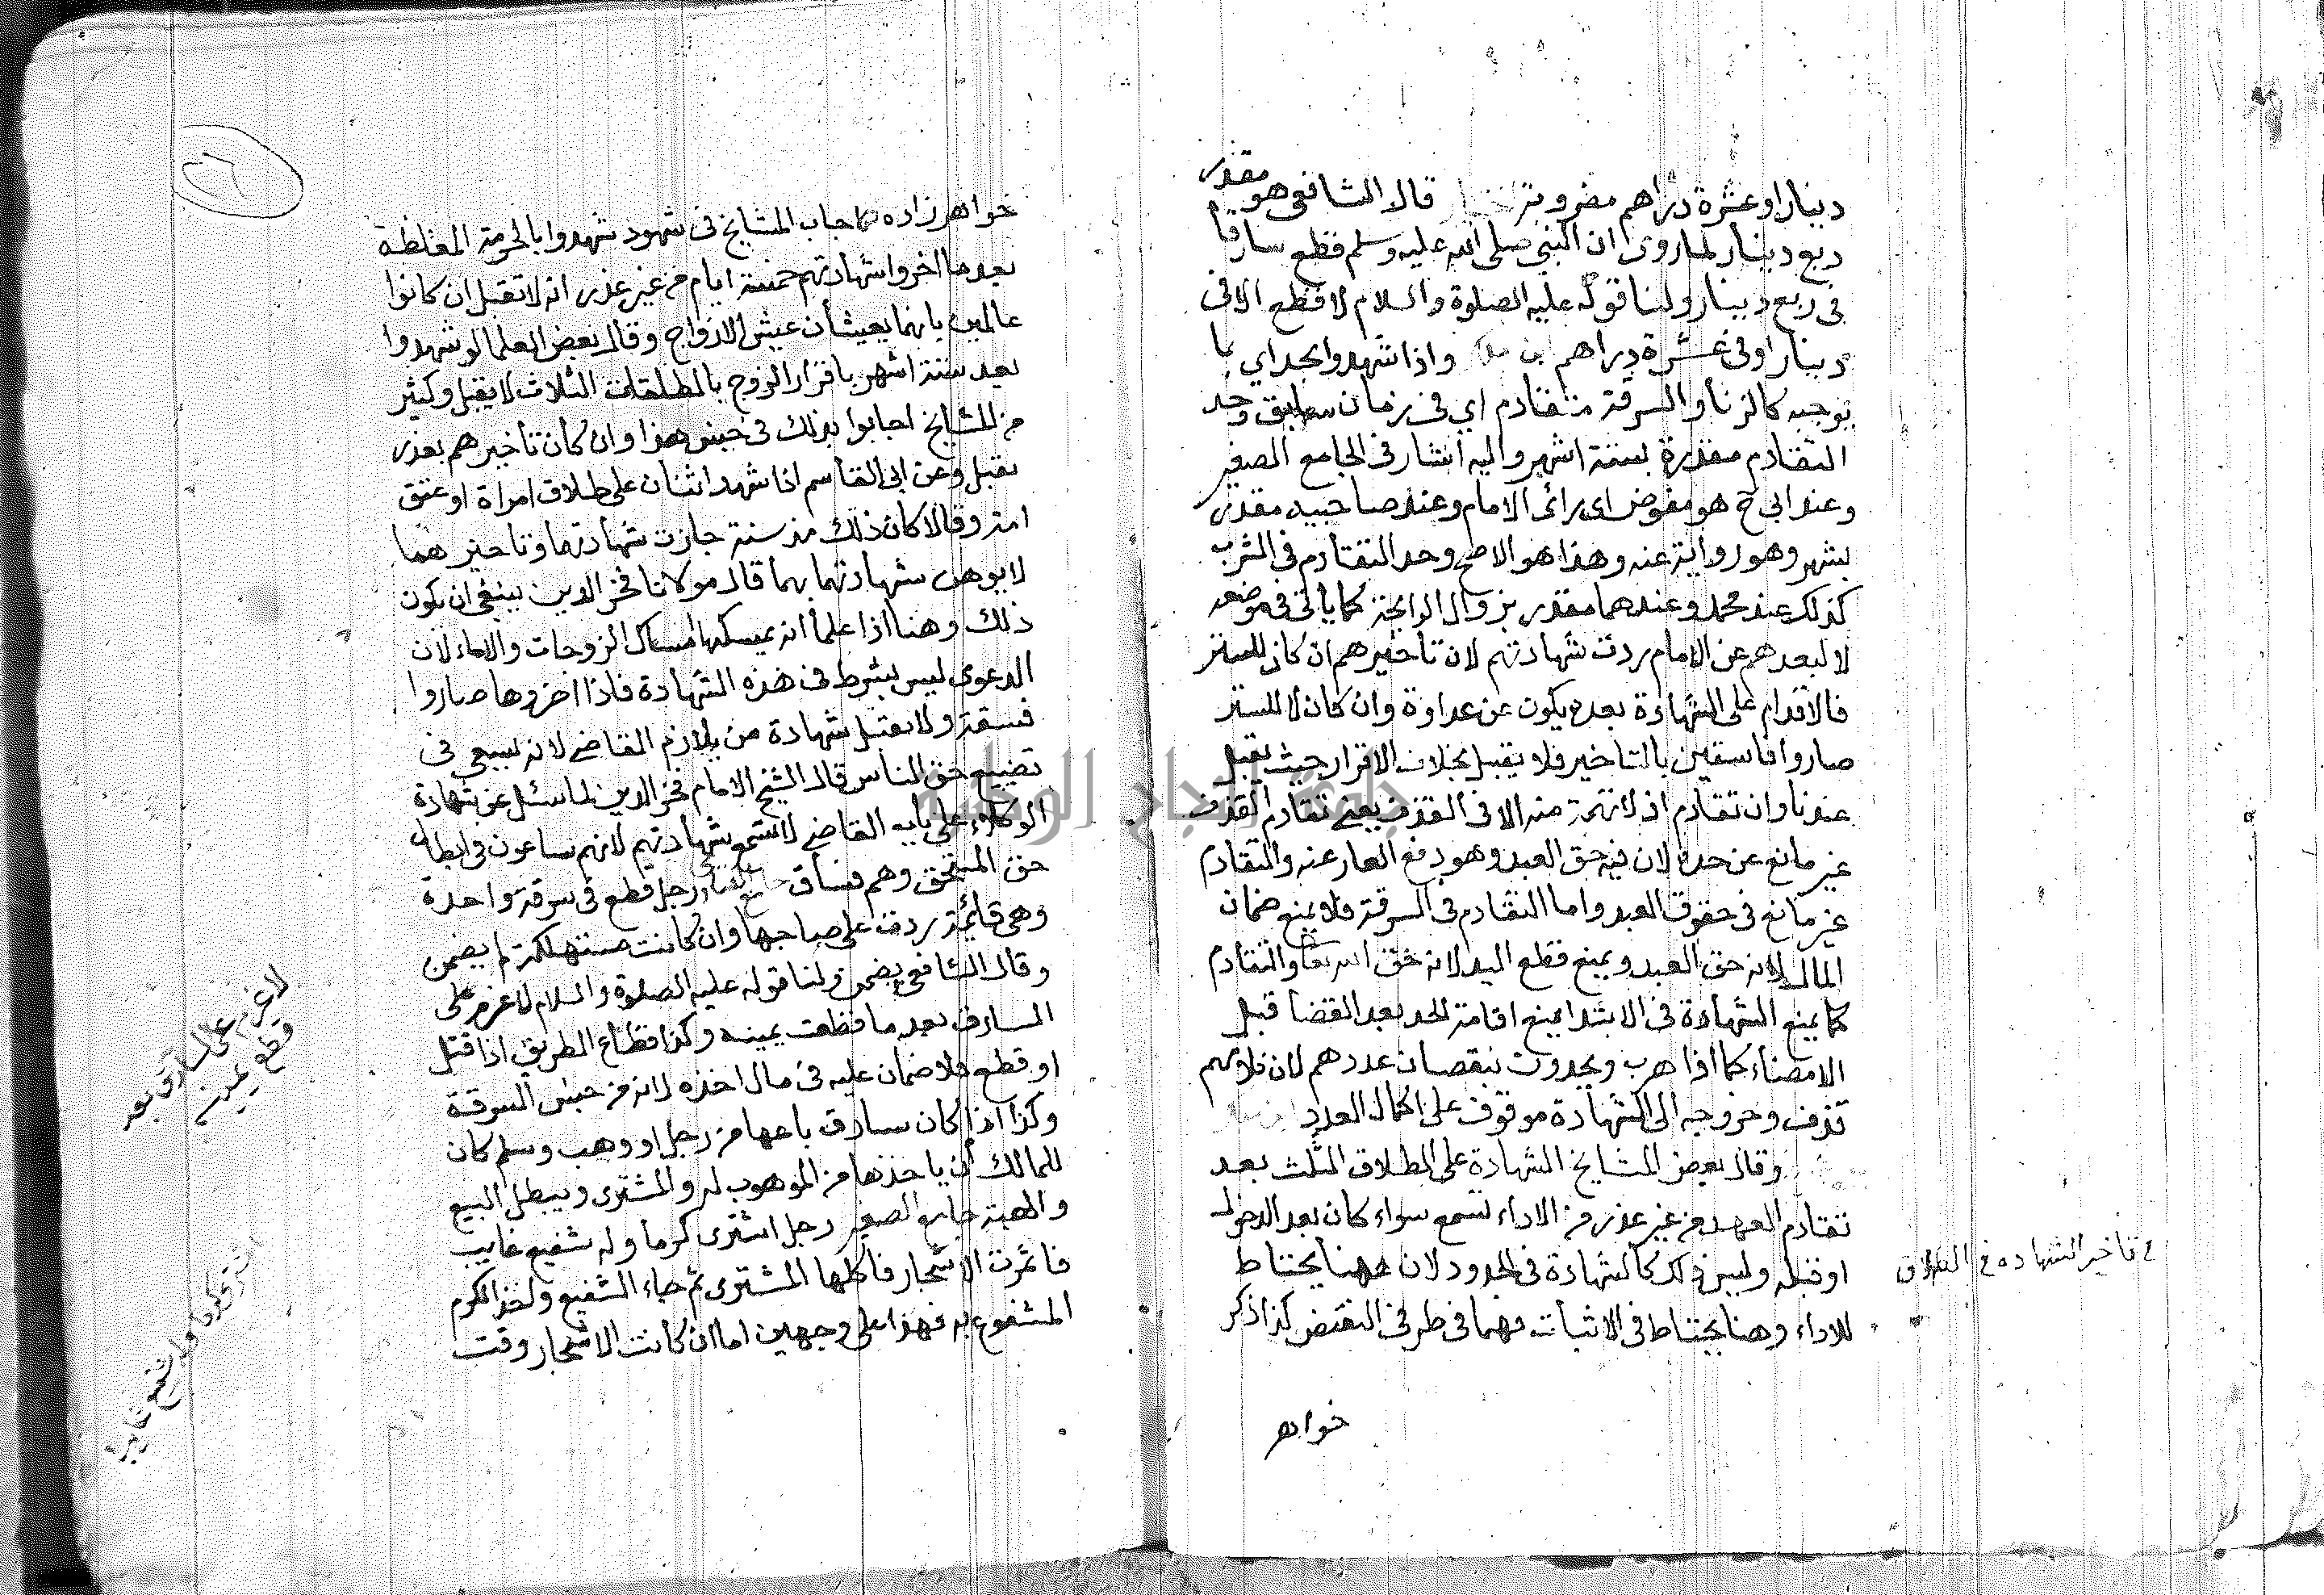 دينار او عشرة دراهم مضروبة قال الشافعى هو مقدر
ربع دينار لما روى ان النبى صلى الله عليه وسلم قطع سارقا
فى ربع دينار ولنا قوله عليه الصلوة والسلام لا قطع الا فى
دينار او فى عشرة دراهم ابن ملك واذا شهدوا بحد اي بما
يوجبه كالزنا والسرقة متقادم اي فى زمان سابق وحد
التقادم مقدرة بستة اشهر واليه اشار فى الجامع الصغير
وعند ابى ح هو مفوض اى رائ الامام وعند صاحبيه مقدر
بشهر وهو رواية عنه وهذا هو الاصح وحد التقادم فى الشرب
كذلك عند محمد وعندهما مقدر بزوال الرايحة كما ياتى فى موضعه
لا لبعدهم عن الامام ردت شهادتهم لان تاخيرهم ان كان للستر
فالاقدام على الشهادة بعده يكون عن عداوة وان كان لا للستر
صاروا فاسقين بالتاخير فلا يقبل بخلاف الاقرار حيث يقبل
عندنا وان تقادم اذ لا تهمة منه الا فى القذف يعنى تقادم القذف
غير مانع عن حده لان فيه حق العبد وهو دفع العار عنه والتقادم
غير مانع فى حقوق العبد واما التقادم فى السرقة فلا يمنع ضمان
المال لانه حق العبد ويمنع قطع اليد لانه حق الله تعالى والتقادم
كما يمنع الشهادة فى الابتدا يمنع اقامة الحد بعد القضا قبل
الامضاء كما اذا هرب ويحدون بنقصان عددهم لان كلامهم
قذف وخروجه الى الشهادة موقوف على اكمال العدد
وقال بعض المشايخ الشهادة على الطلاق الثلث بعد
تقادم العهد من غير عذر من الاداء تسمع سواء كان بعد الدخول
او قبله وليس ذلك كالشهادة فى الحدود لان ههنا يحتاط
للاداء وهنا يحتاط فى الاثبات فهما فى طرفى النقض كذا ذكر
خواهر
فى تاخير الشهاده فى الطلاق
٢٦
خواهر زاده كما جاب المشايخ فى شهود شهدوا بالحرمة المغلظة
بعد ما اخروا شهادتهم خمسة ايام من غير عذر انه لا تقبل ان كانوا
عالمين بانهما يعيشان عيش الازواج وقال بعض العلما لو شهدوا
بعد ستة اشهر باقرار الزوج بالطلقات الثلاث لا يقبل وكثير
من المشايخ اجابوا بذلك فى جنس هذا وان كان تاخيرهم بعذر
تقبل وعن ابى القاسم اذا شهد اثنان على طلاق امراة او عتق
امة وقالا كان ذلك منذ سنة جازت شهادتهما وتاخيرهما
لا يوهن شهادتهما بهما قال مولانا فخر الدين ينبغى ان يكون
ذلك وهنا اذا علما انه يمسكها امساك الزوجات والاماء لان
الدعوى ليس بشرط فى هذه الشهادة فاذا اخروها صاروا
فسقة ولا يقبل شهادة من يلازم القاضى لانه يسعى فى
تضييع حق الناس قال الشيخ الامام فخر الدين لما سئل عن شهادة
الوكلاء على باب القاضى لا تسمع شهادتهم لانهم يساعون فى ابطال
حق المستحق وهم فساق رجل قطع فى سرقة واحدة
وهى قائمة ردت على صاحبها وان كانت مستهلكة لم يضمن
وقال الشافعى يضمن ولنا قوله عليه الصلوة والسلام لا غرم على
السارق بعد ما قطعت يمينه وكذا قطاع الطريق اذا قتل
او قطع فلا ضمان عليه فى مال اخذه لانه من جنس السرقة
وكذا اذا كان سارق باعها من رجل او وهب وسلم كان
للمالك ان ياخذها من الموهوب له والمشترى ويبطل البيع
والهبة جامع الصغير رجل اشترى كرما وله شفيع غايب
فاثمرت الاشجار فاكلها المشترى ثم جاء الشفيع واخذ الكرم
المشفوع به فهذا على وجهين اما ان كانت الاشجار وقت
لا غرم على السارق بعد
قطع يمينه
اشترى كرما وله شفيع غايب
جامعة النجاح الوطنية